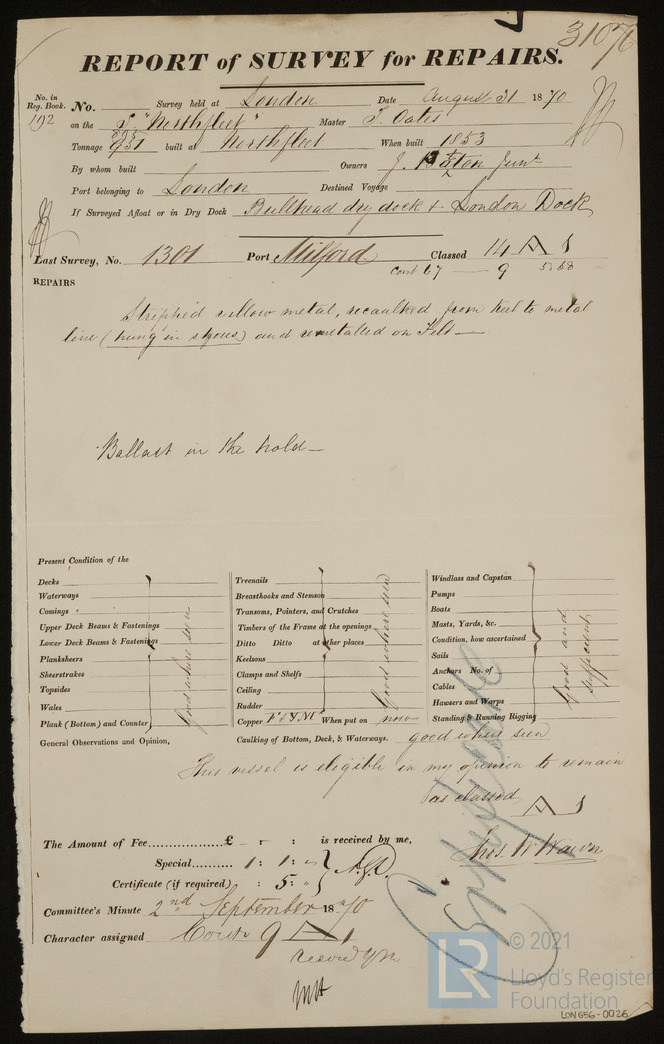 31076
REPORT of SURVEY for REPAIRS.
No. in Reg. Book. No. Survey held at London Date August 31 1870
192 on the S "Northfleet" Master T. Oates
Tonnage 951 built at Northfleet When built 1853
895
By whom built Owners J. Junr
Port belonging to London Destined Voyage
If Surveyed Afloat or in Dry Dock Bullhead dry dock & London Dock
Last Survey, No. 1301 Port Milford Classed 14 A 1
Cont 67 — 9 5.68
REPAIRS
Stripped yellow metal, recaulked from keel to metal
line (hung in styces) and remetalled on Felt—
Ballast in the hold—
Present Condition of the
Decks
Waterways
Comings
Upper Deck Beams & Fastenings
Lower Deck Beams & Fastenings
Planksheers
Sheerstrakes
Topsides
Wales
Plank (Bottom) and Counter
Good where seen
Treenails
Breasthooks and Stemson
Transoms, Pointers, and Crutches
Timbers of the Frame at the openings
Ditto Ditto at other places
Keelsons
Clamps and Shelfs
Ceiling
Rudder
Copper F & Y M When put on now
Good where seen
Windlass and Capstan
Pumps
Boats
Masts, Yards, &c.
Condition, how ascertained
Sails
Anchors No. of
Cables
Hawsers and Warps
Standing & Running Rigging
Good and sufficient
General Observations and Opinion, Caulking of Bottom, Deck, & Waterways. good where seen
This vessel is eligible in my opinion to remain
as classed A 1
The Amount of Fee £ - : is received by me,
Special 1 : 1 : -
Certificate (if required) : 5 : -
Thos. W Wawn
Committee's Minute 2nd September 1870
Character assigned Cont 9 A 1
© 2021
LR
Lloyd's Register
Foundation
LON656-0026